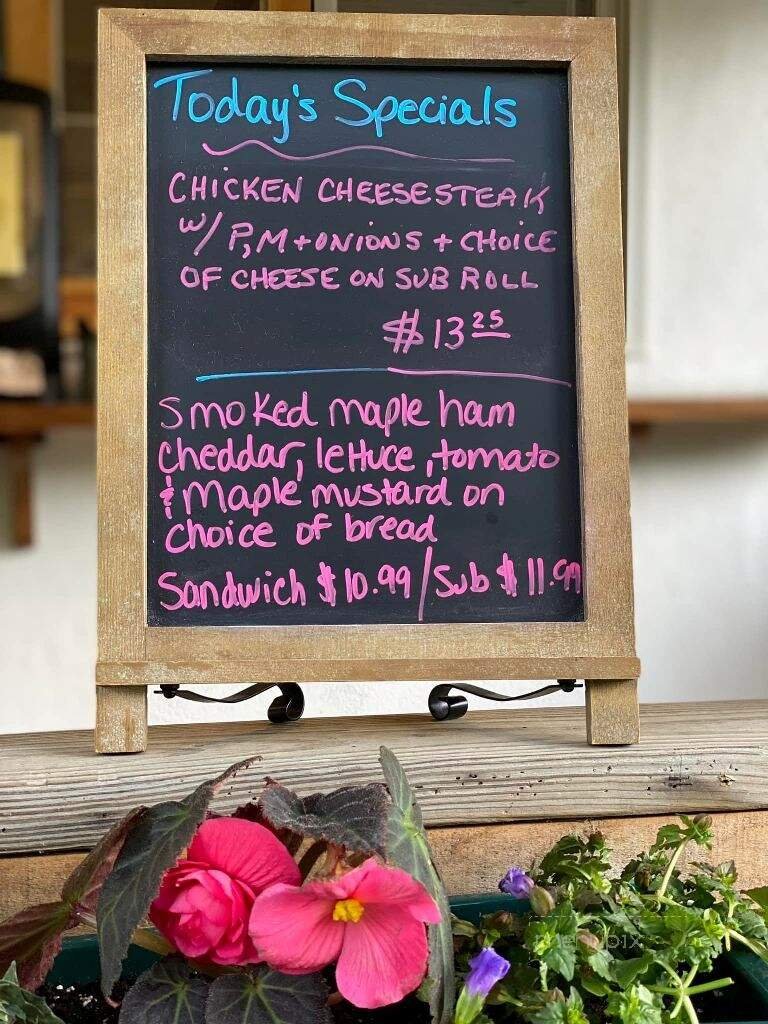 Today's Specials
CHICKEN CHEESESTEAK
W/ P,M+ONIONS + CHOICE
OF CHEESE ON SUB ROLL
$13 25
Smoked maple ham
cheddar, lettuce, tomato
& Maple mustard on
choice of bread
Sandwich $10.99/Sub $11.99